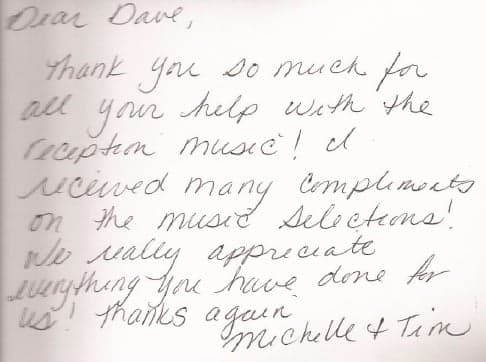 Dear Dave,
Thank you so much for
all your help with the
reception music! I
received many compliments
on the music selections!
We really appreciate
everything you have done for
us! Thanks again
Michelle & Tim